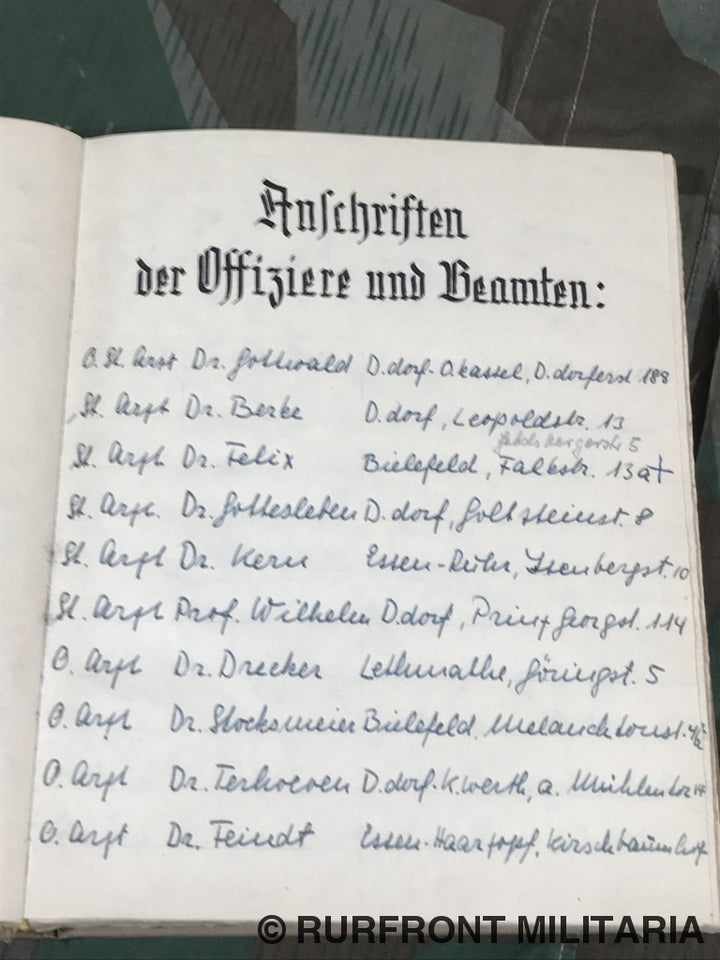 Anschriften
der Offiziere und Beamten:
O. St. Arzt Dr. Gottwald D.dorf-O.kassel, D.dorferst. 188
St. Arzt Dr. Berke D.dorf, Leopoldstr. 13
5
St. Arzt Dr. Felix Bielefeld, Falkstr. 13a+
St. Arzt. Dr. Gottesleben D.dorf, Goltsteinst. 8
St. Arzt Dr. Kern Essen-Ruhr, Isenbergst. 10
St. Arzt Prof. Wilhelm D.dorf, Prinz Georgst. 114
O. Arzt Dr. Drecker Lethmathe, Göringst. 5
O. Arzt Dr. Stocksmeier Bielefeld, Melanchtonst.
O. Arzt Dr. Terhoeven D.dorf-K.werth, a. Mühlentor
O. Arzt Dr. Feindt Essen-Haarzopf, Kirschbaumhof
© RURFRONT MILITARIA